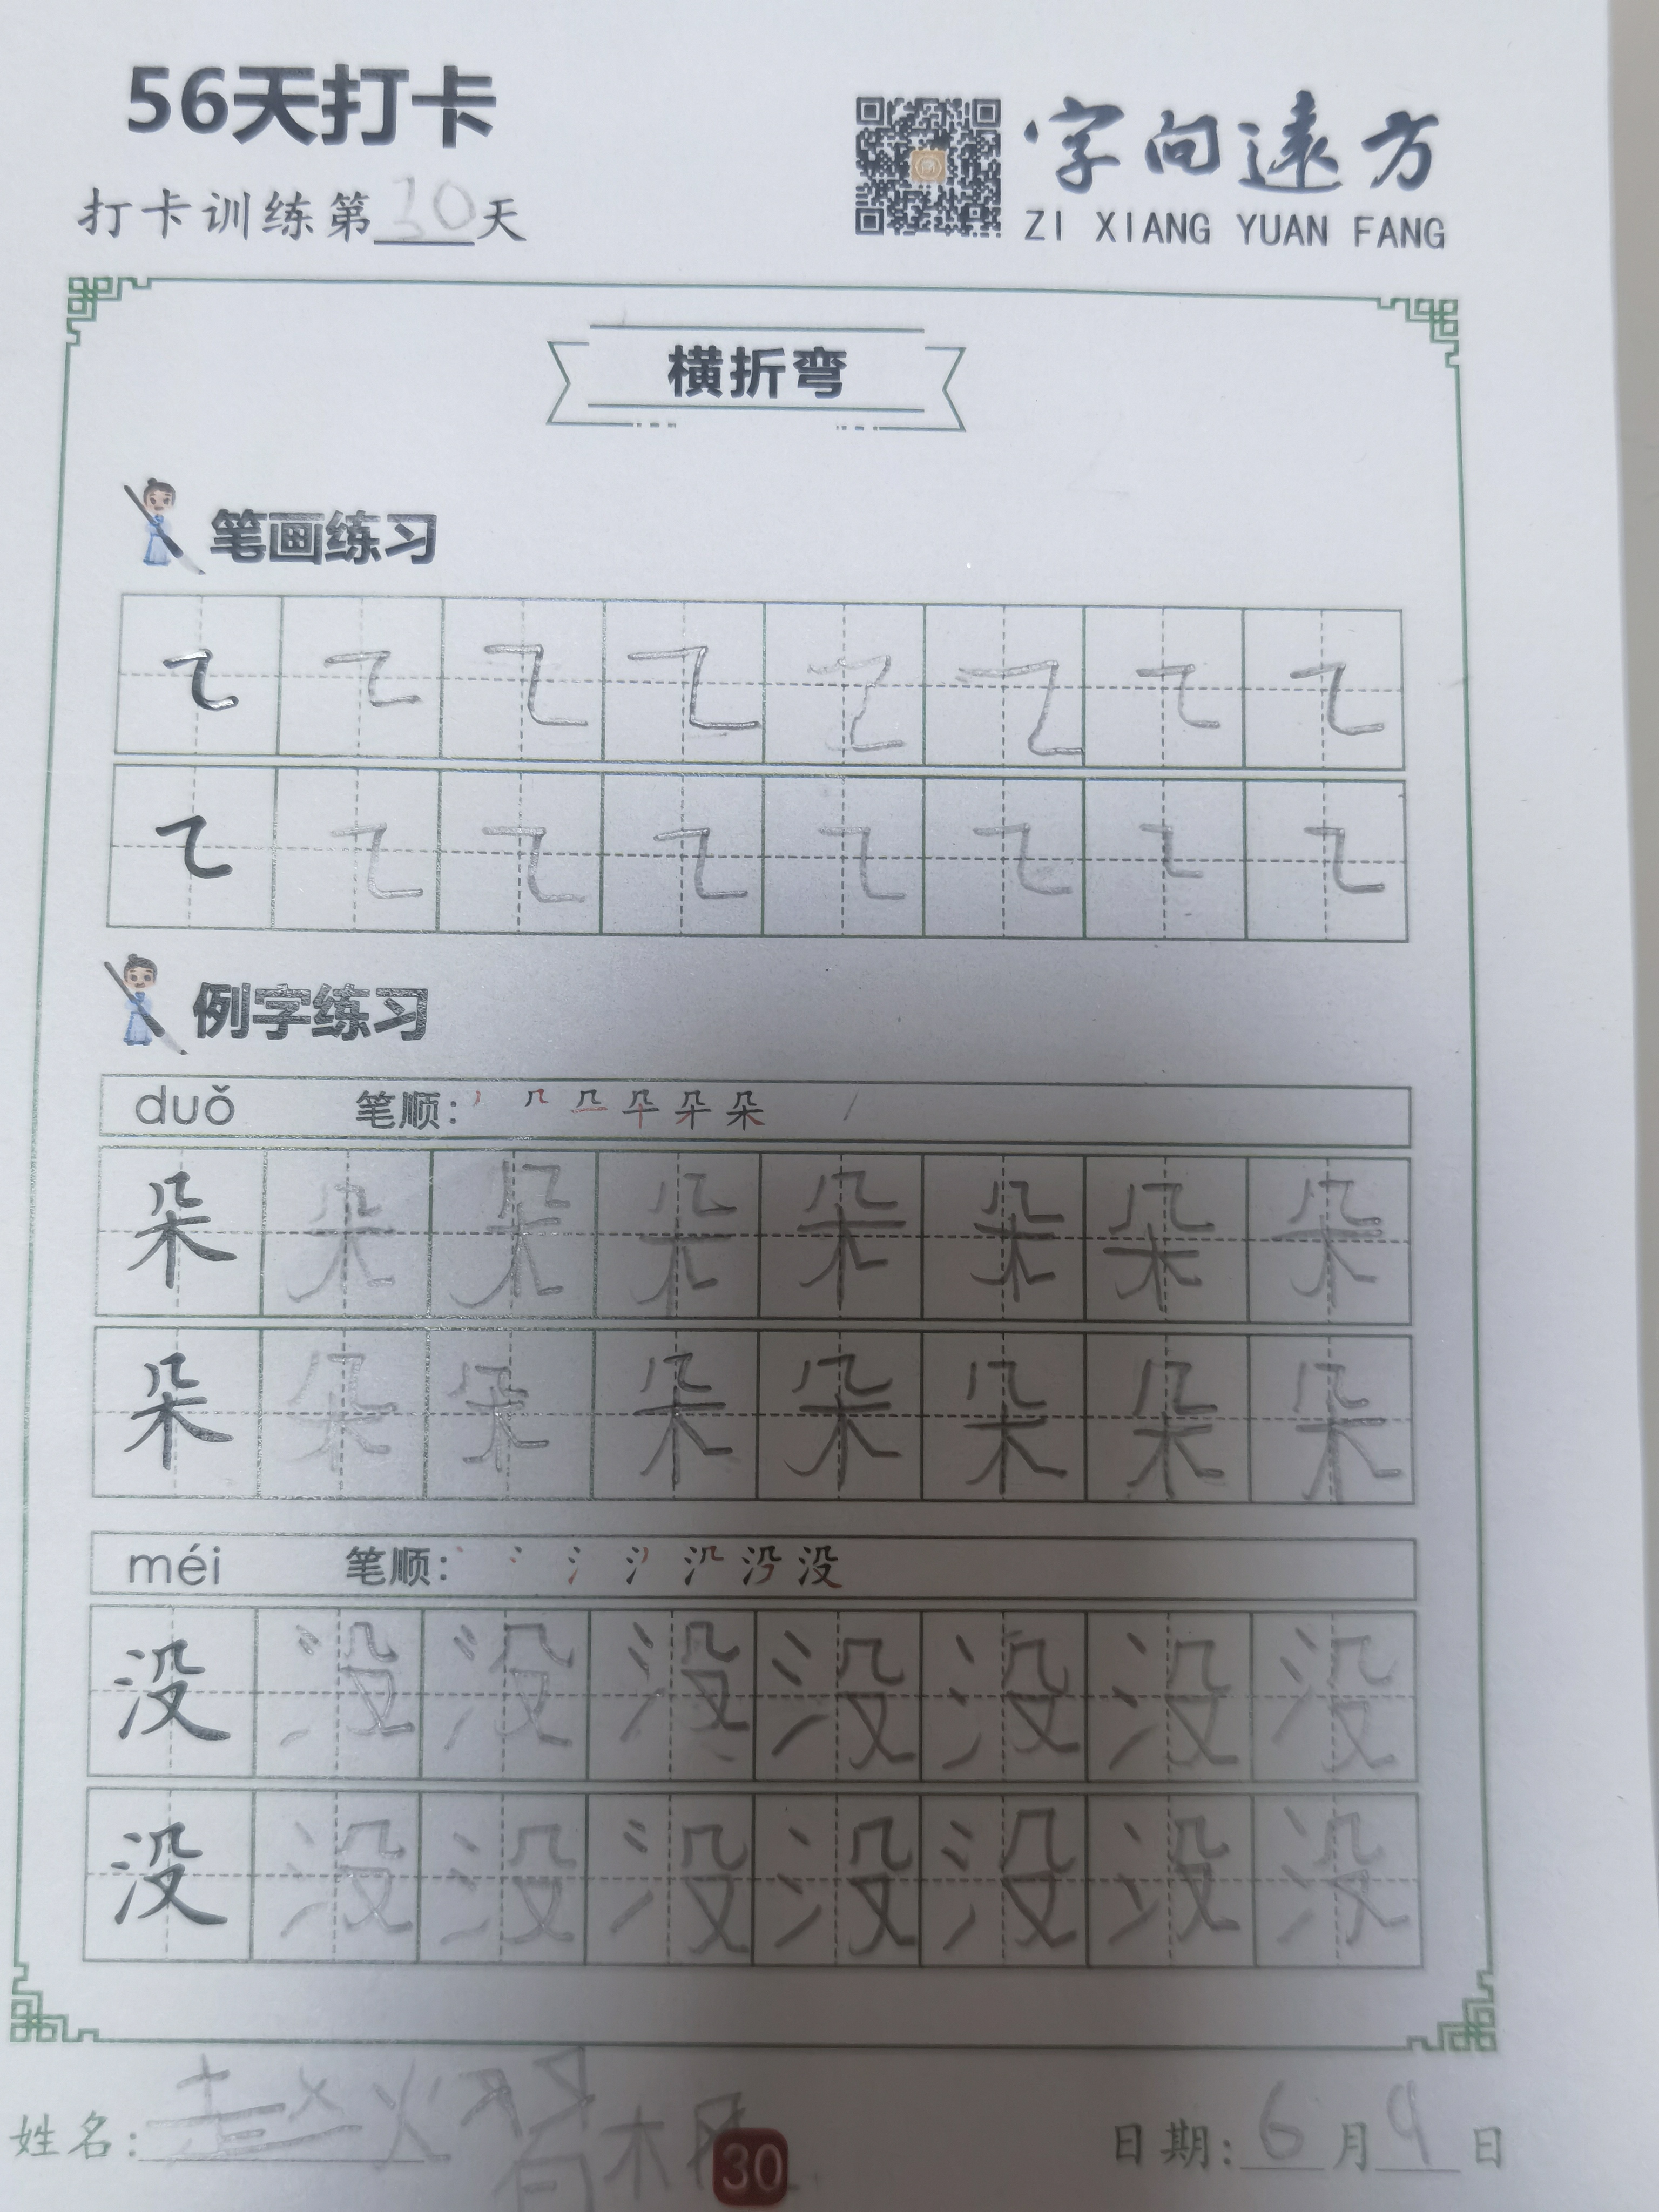 56天打卡
字向遠方
打卡训练第30天
ZI XIANG YUAN FANG
横折弯
笔画练习
例字练习
duǒ 笔顺:
朵 朵 朵 朵 朵 朵 朵 朵
朵 朵 朵 朵 朵 朵 朵 朵
méi 笔顺:
没 没 没 没 没 没 没 没
没 没 没 没 没 没 没 没
姓名:
日期: 6月9日
30